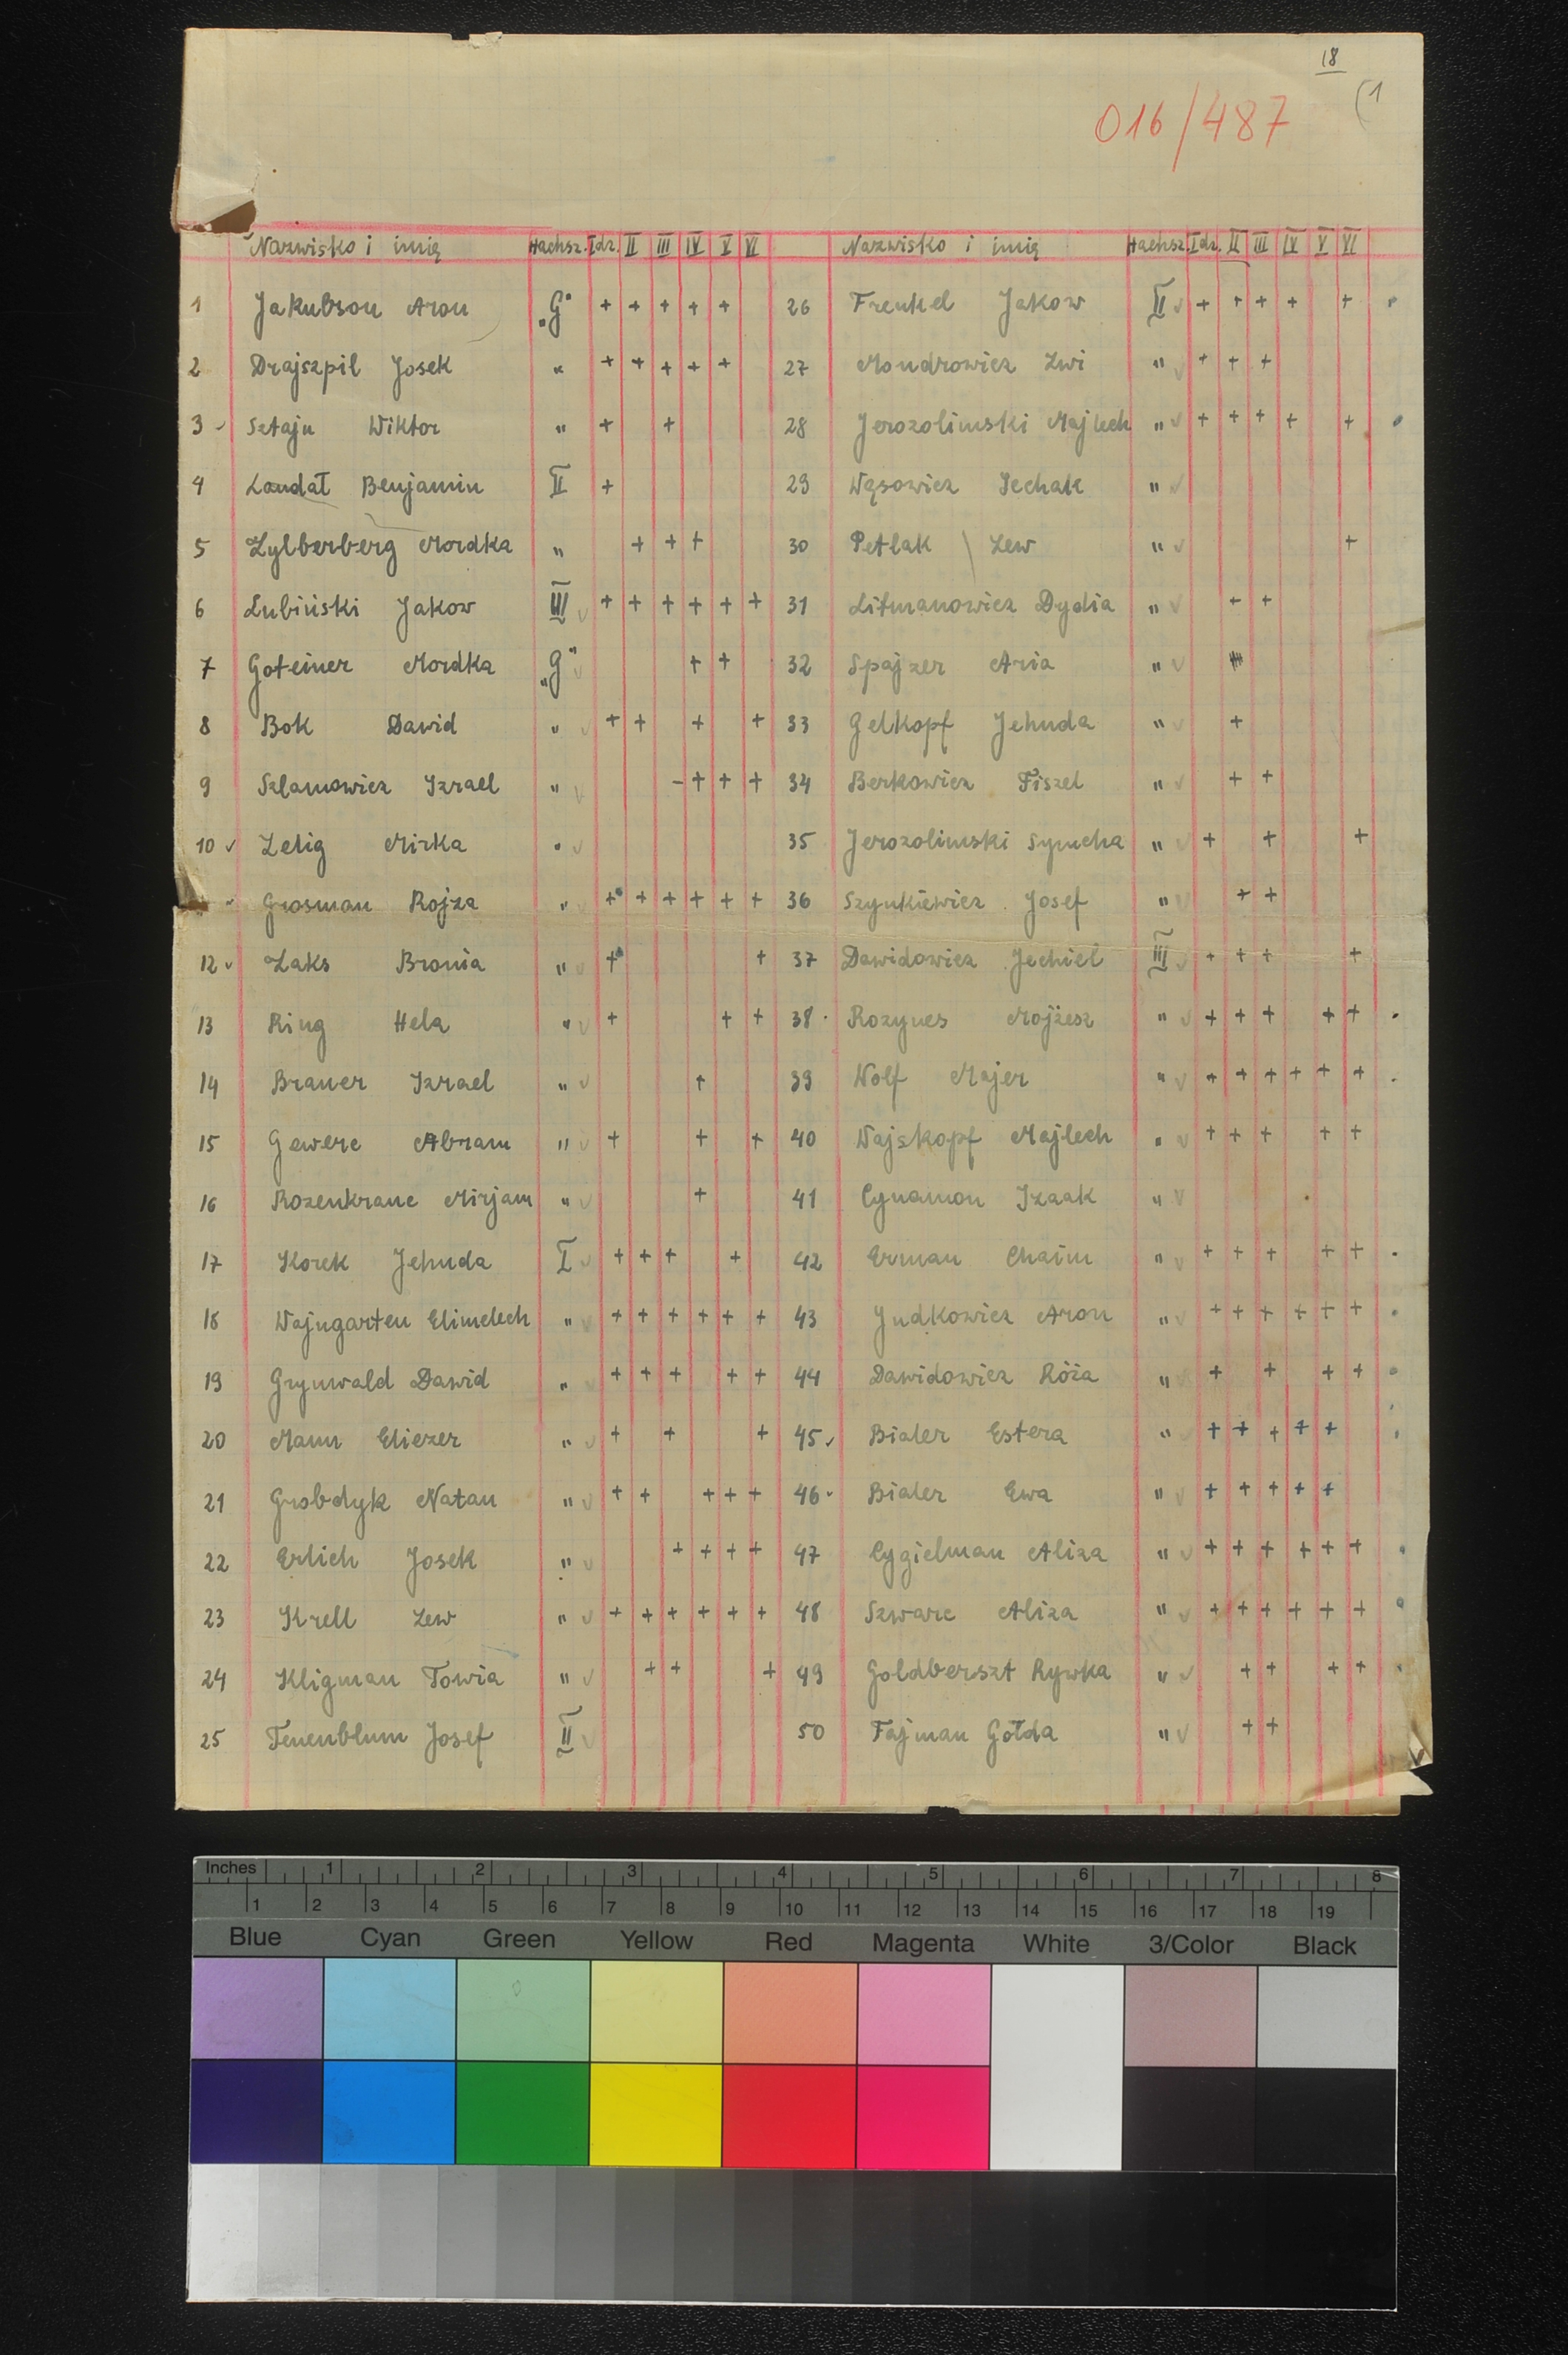 18
(1
016/487
Nazwisko i imię Hachsz. I dz. II III IV V VI Nazwisko i imię Hachsz. I dz. II III IV V VI
1 Jakubson Aron "G" + + + + + 26 Frenkel Jakow II √ + + + + +
2 Drajszpil Josek " + + + + + 27 Mondrowicz Lwi " √ + + +
3 Sztajn Wiktor " + + 28 Jerozolimski Majlech " √ + + + + +
4 Landał Benjamin II + 29 Wąsowicz Icchak " √
5 Zylberberg Mordka " + + + 30 Petlak \ Lew " √ +
6 Lubiński Jakow III √ + + + + + + 31 Litmanowicz Dydia " √ + +
7 Goteiner Mordka "G" √ + + 32 Spajzer Aria " √
8 Bok Dawid " √ + + + + 33 Gelkopf Jehuda " √ +
9 Szlamowicz Izrael " √ - + + + 34 Berkowicz Fiszel " √ + +
10 √ Zelig Mirka " √ 35 Jerozolimski Symcha " √ + + +
Grosman Rojza " √ + + + + + + 36 Szynkiewicz Josef " √ + +
12 √ Laks Bronia " √ + + 37 Dawidowicz Jechiel III √ + + + +
13 Ring Hela " √ + + + 38 Rozynes Mojżesz " √ + + + + +
14 Brauer Izrael " √ + 39 Wolf Majer " √ + + + + + +
15 Gewerc Abram " √ + + + 40 Wajskopf Majlech " √ + + + + +
16 Rozenkranc Mirjam " √ + 41 Cynamon Izaak " √
17 Korek Jehuda I √ + + + + 42 Erman Chaim " √ + + + + +
18 Wajngarten Elimelech " √ + + + + + + 43 Judkowicz Aron " √ + + + + + +
19 Grynwald Dawid " √ + + + + + 44 Dawidowicz Róża " √ + + + +
20 Mann Eliezer " √ + + + 45 √ Bialer Estera " √ + + + + +
21 Grobdyk Natan " √ + + + + + 46 Bialer Ewa " √ + + + + +
22 Erlich Josek " √ + + + + 47 Cygielman Aliza " √ + + + + + +
23 Krell Lew " √ + + + + + + 48 Szwarc Aliza " √ + + + + + +
24 Kligman Towia " √ + + + 49 Goldberszt Rywka " √ + + + +
25 Tenenblum Josef II √ 50 Fajman Gołda " √ + +
Inches 1 2 3 4 5 6 7 8
1 2 3 4 5 6 7 8 9 10 11 12 13 14 15 16 17 18 19
Blue Cyan Green Yellow Red Magenta White 3/Color Black